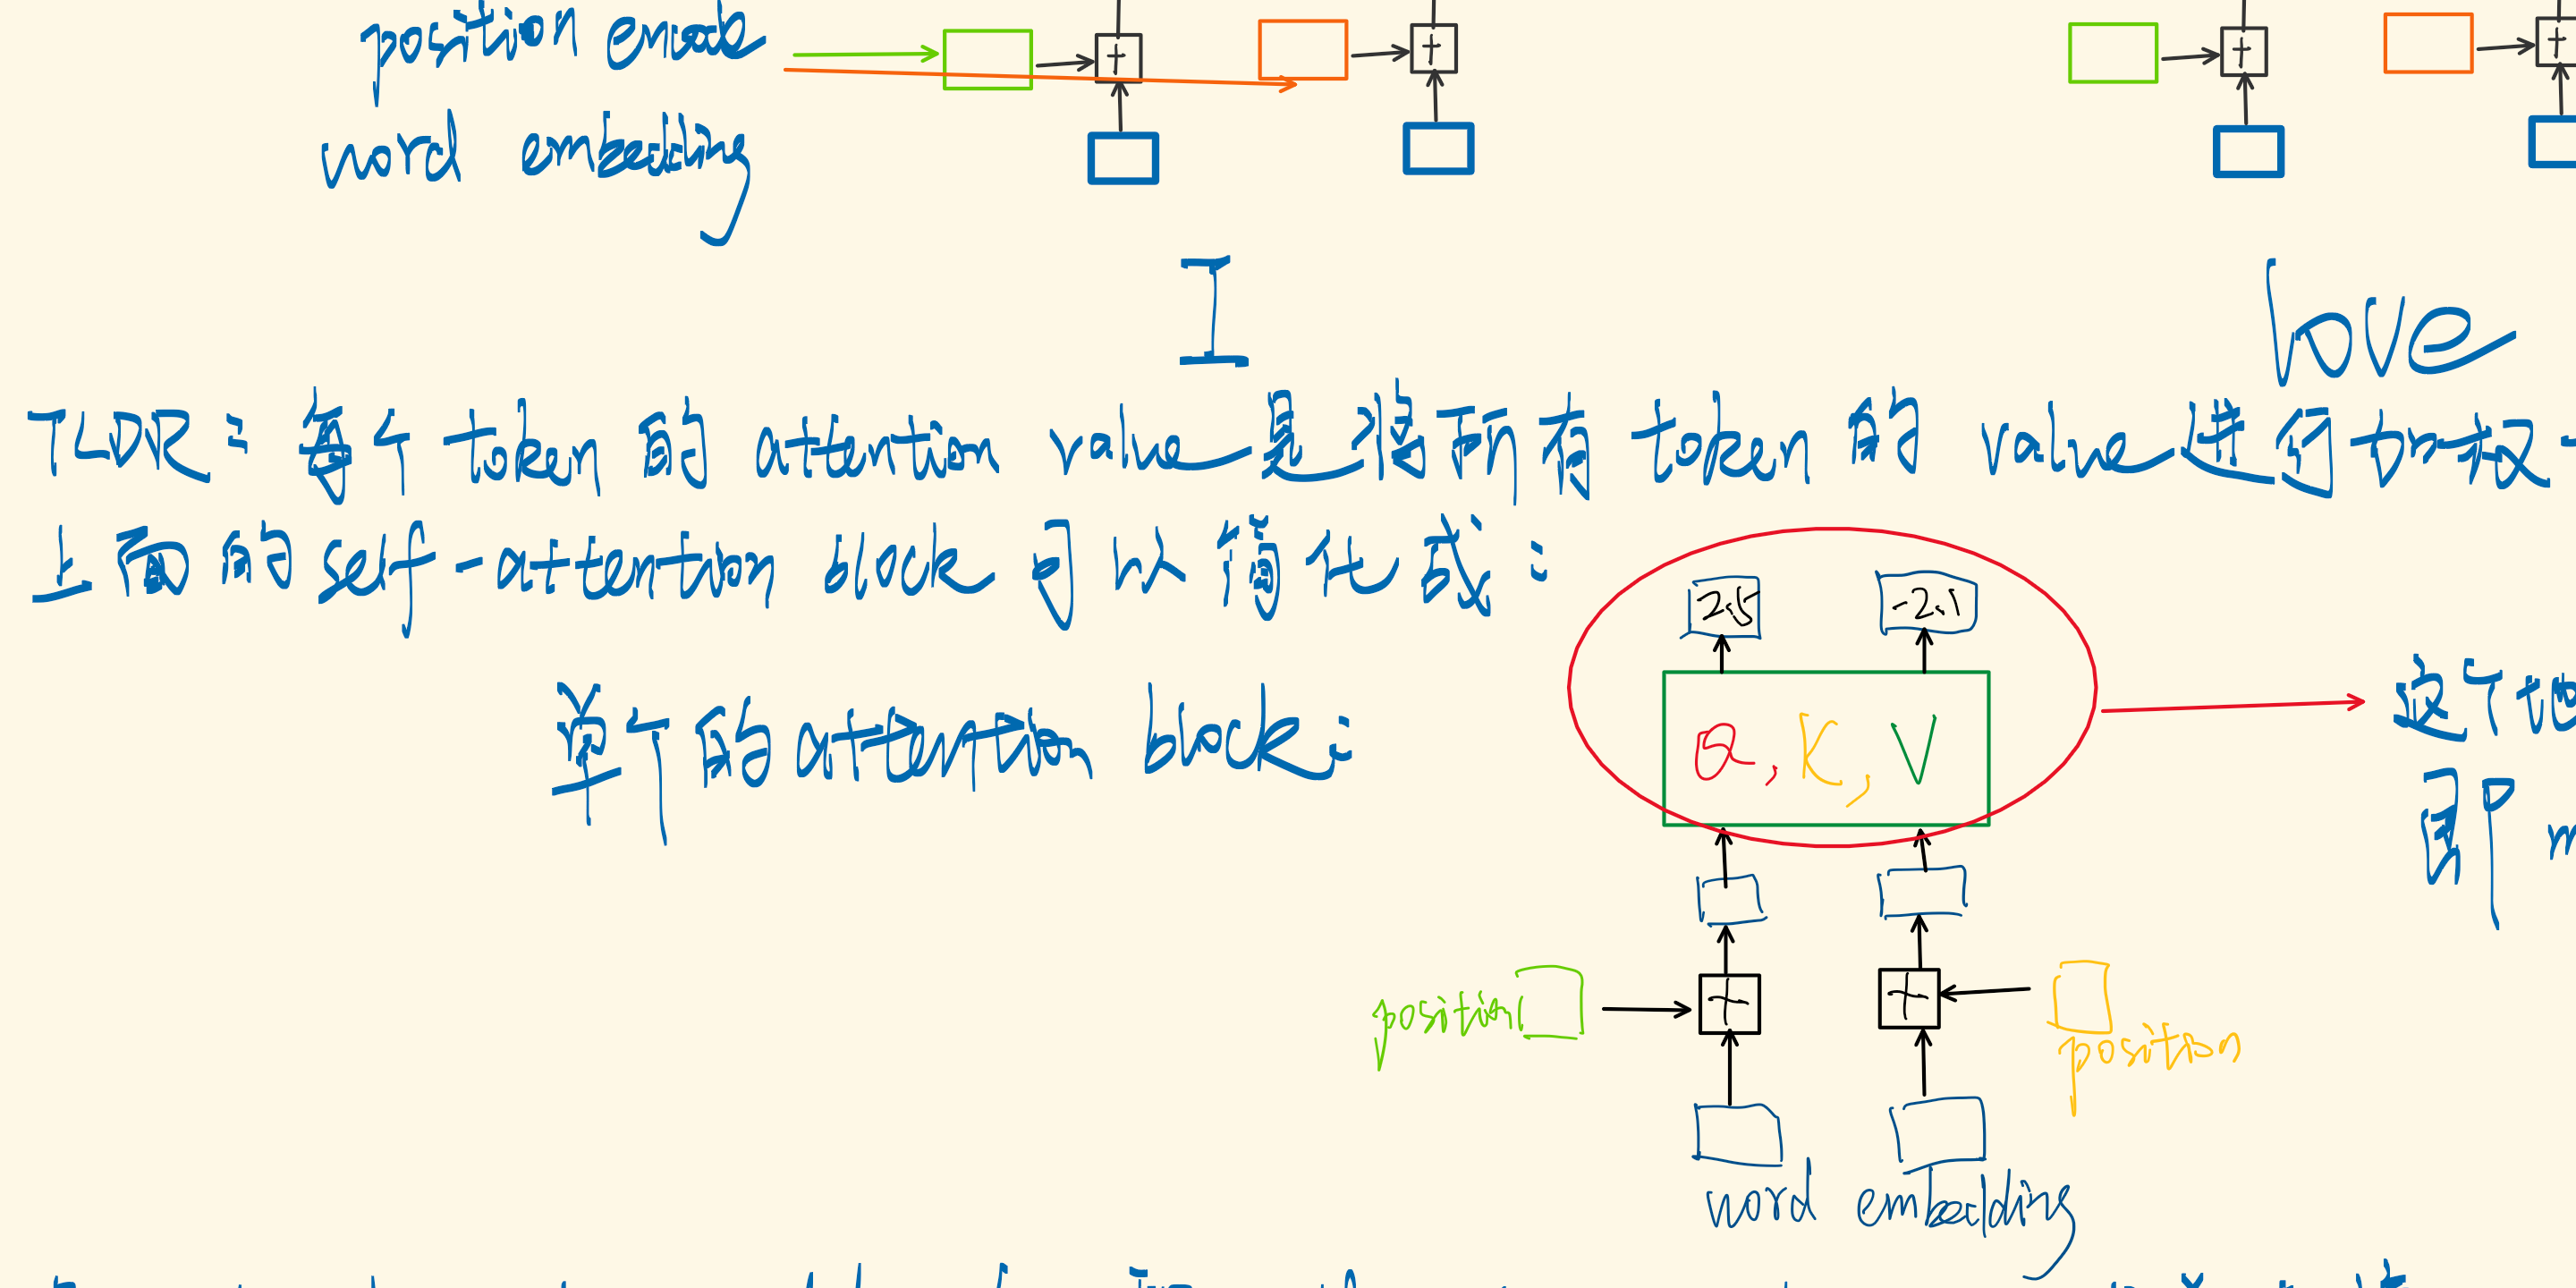 position encode
+ + + +
word embedding
I love
TLDR: 每个 token 的 attention value 是将所有 token 的 value 进行加权
上面的 self-attention block 可以简化成:
2.5 -2.1
这个
单个的 attention block:
Q, K, V
即
position + +
position
word embedding